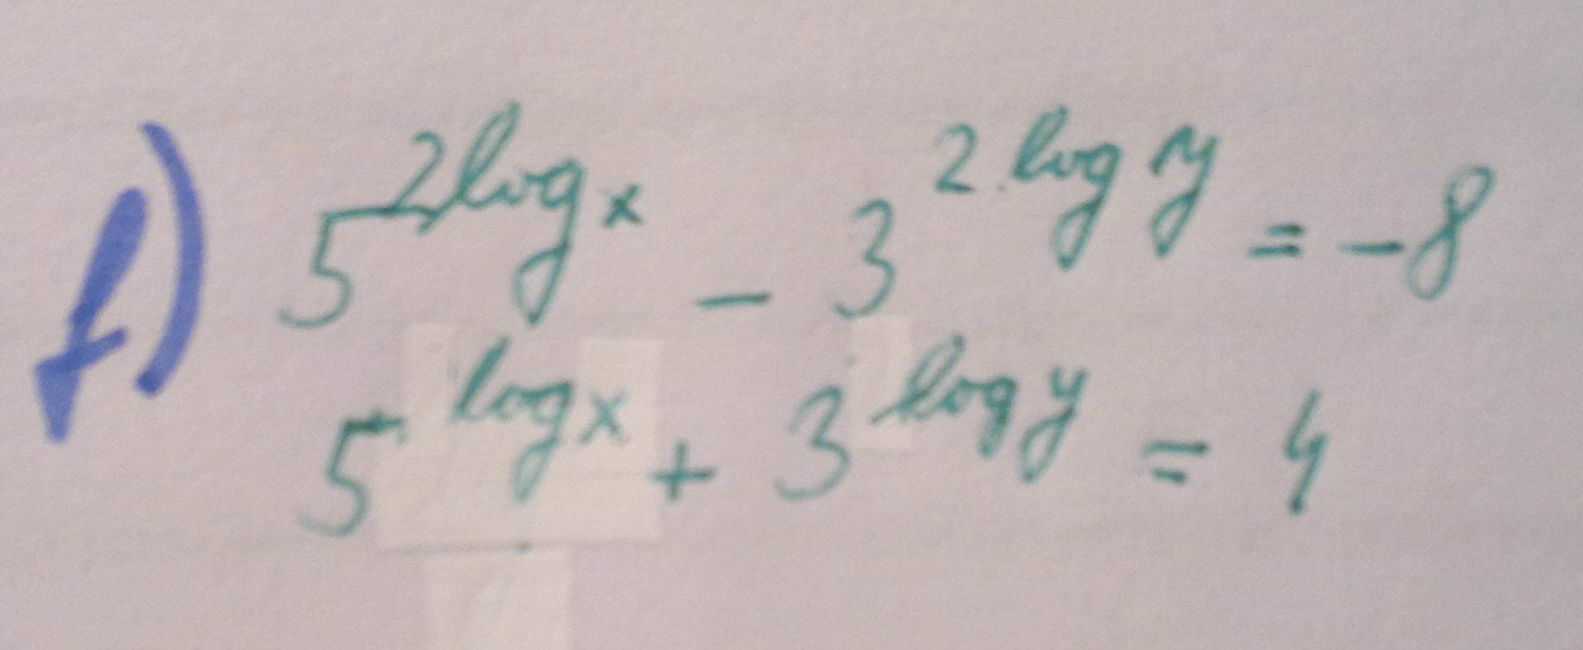 f) 5^{2 log x} - 3^{2 · log y} = -8
5^{log x} + 3^{log y} = 4